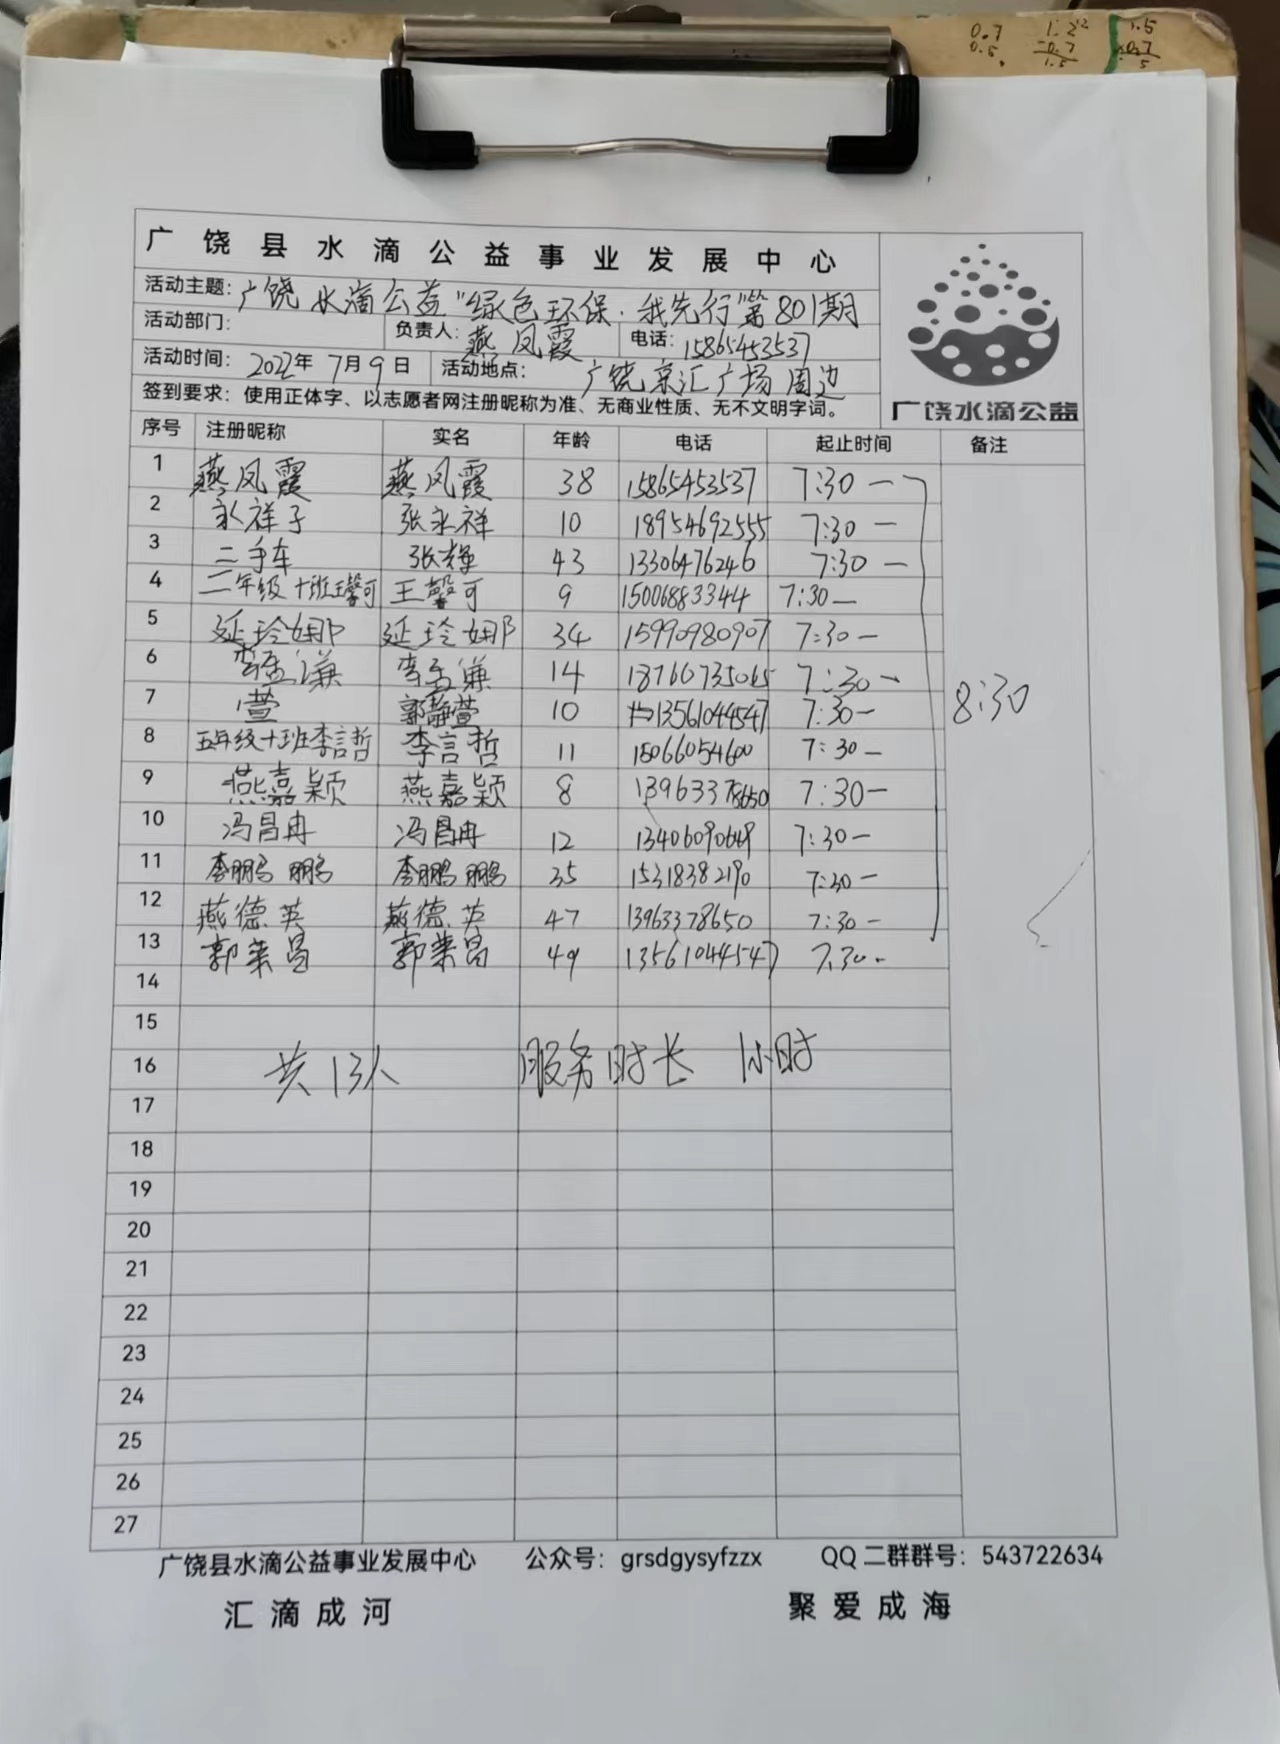 0.7 1.2 1.5
0.5 -0.7 ×0.7
1.5
广饶县水滴公益事业发展中心
活动主题：广饶水滴公益"绿色环保·我先行"第801期
活动部门： 负责人：燕凤霞 电话：15865453537
活动时间：2022年7月9日 活动地点：广饶京汇广场周边
签到要求：使用正体字、以志愿者网注册昵称为准、无商业性质、无不文明字词。
广饶水滴公益
序号 注册昵称 实名 年龄 电话 起止时间 备注
1 燕凤霞 燕凤霞 38 15865453537 7:30—
2 永祥子 张永祥 10 18954692555 7:30—
3 二手车 张辉 43 13306476246 7:30—
4 二年级十班王馨可 王馨可 9 15006883344 7:30—
5 延玲娜 延玲娜 34 15990980907 7:30—
6 李孟谦 李孟谦 14 18766735065 7:30—
7 萱 郭静萱 10 13561044547 7:30— 8:30
8 五年级十班李言哲 李言哲 11 15066054600 7:30—
9 燕嘉颖 燕嘉颖 8 13963378650 7:30—
10 冯昌冉 冯昌冉 12 13406090669 7:30—
11 李鹏鹏 李鹏鹏 35 15318382190 7:30—
12 燕德英 燕德英 47 13963378650 7:30—
13 郭荣昌 郭荣昌 49 13561044547 7:30-
14
15
16 共13人 服务时长 1小时
17
18
19
20
21
22
23
24
25
26
27
广饶县水滴公益事业发展中心 公众号：grsdgysyfzzx QQ二群群号：543722634
汇滴成河 聚爱成海